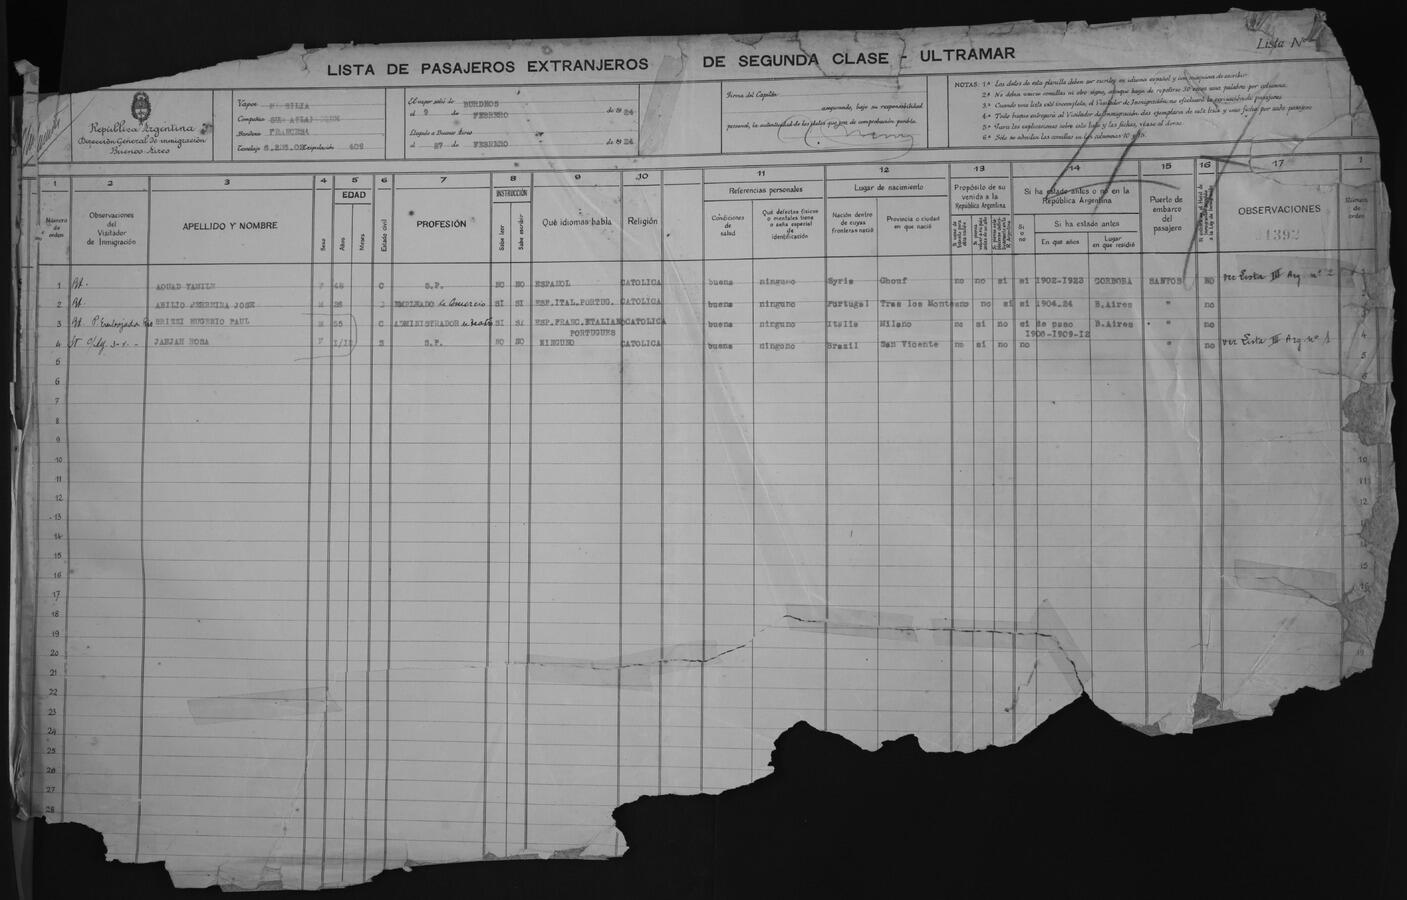 LISTA DE PASAJEROS EXTRANJEROS DE SEGUNDA CLASE - ULTRAMAR
Lista Nº
República Argentina
Dirección General de inmigración
Buenos Aires
Vapor
Compañia
Bandera FRANCESA
Tonelaje tripulación 402
El vapor salió de BURDEOS
el 9 de FEBRERO de 1924
Llegado a Buenos Aires
el 27 de FEBRERO de 1924
Firma del Capitán
asegurando, bajo su responsabilidad
personal, la autenticidad de los datos que son de comprobación posible.
NOTAS: 1ª Los datos de esta planilla deben ser escritos en idioma español y con máquina de escribir.
2ª No deben usarse comillas ni otro signo, aunque haya de repetirse 30 veces una palabra por columna.
3ª Cuando una lista esté incompleta, el Visitador de Inmigración no efectuará la recepción de pasajeros
4ª Todo buque entregará al Visitador de Inmigración dos ejemplares de esta lista y una ficha por cada pasajero
5ª Para las explicaciones sobre esta lista y las fichas, véase al dorso.
6ª Sólo se admiten las comillas en las columnas 10 y 15.
1 2 3 4 5 6 7 8 9 10 11 12 13 14 15 16 17 1
Número de orden
Observaciones del Visitador de Inmigración
APELLIDO Y NOMBRE
Sexo
EDAD
Años
Meses
Estado civil
PROFESIÓN
INSTRUCCIÓN
Sabe leer
Sabe escribir
Qué idiomas habla
Religión
Referencias personales
Condiciones de salud
Qué defectos físicos o mentales tiene o seña especial de identificación
Lugar de nacimiento
Nación dentro de cuyas fronteras nació
Provincia o ciudad en que nació
Propósito de su venida a la República Argentina
Si ha estado antes o no en la República Argentina
Si o no
Si ha estado antes
En que años
Lugar en que residió
Puerto de embarco del pasajero
OBSERVACIONES
Número de orden
1 AOUAD YAMILE F 48 C S.P. NO NO ESPAÑOL CATOLICA buena ninguno Syria Chouf no no si si 1902-1923 CORDOBA SANTOS NO ver Lista III Arg nº 2
2 ABILIO JOSE M EMPLEADO de Comercio SI SI ESP.ITAL.PORTUG. CATOLICA buena ninguno Portugal Tras los Montes no no si si 1904.24 B.Aires " no
3 BRIZZI EUGENIO PAUL M 55 C ADMINISTRADOR SI SI ESP.FRANC.ITALIANO CATOLICA buena ninguno Italia Milano no si no si de paso B.Aires " no
PORTUGUES 1908-1909-12
4 JANJAN ROSA F S S.P. NO NO NINGUNO CATOLICA buena ninguno Brazil San Vicente no si no no " no ver Lista III Arg nº 1
5
6
7
8
9
10
11
12
13
14
15
16
17
18
19
20
21
22
23
24
25
26
27
28